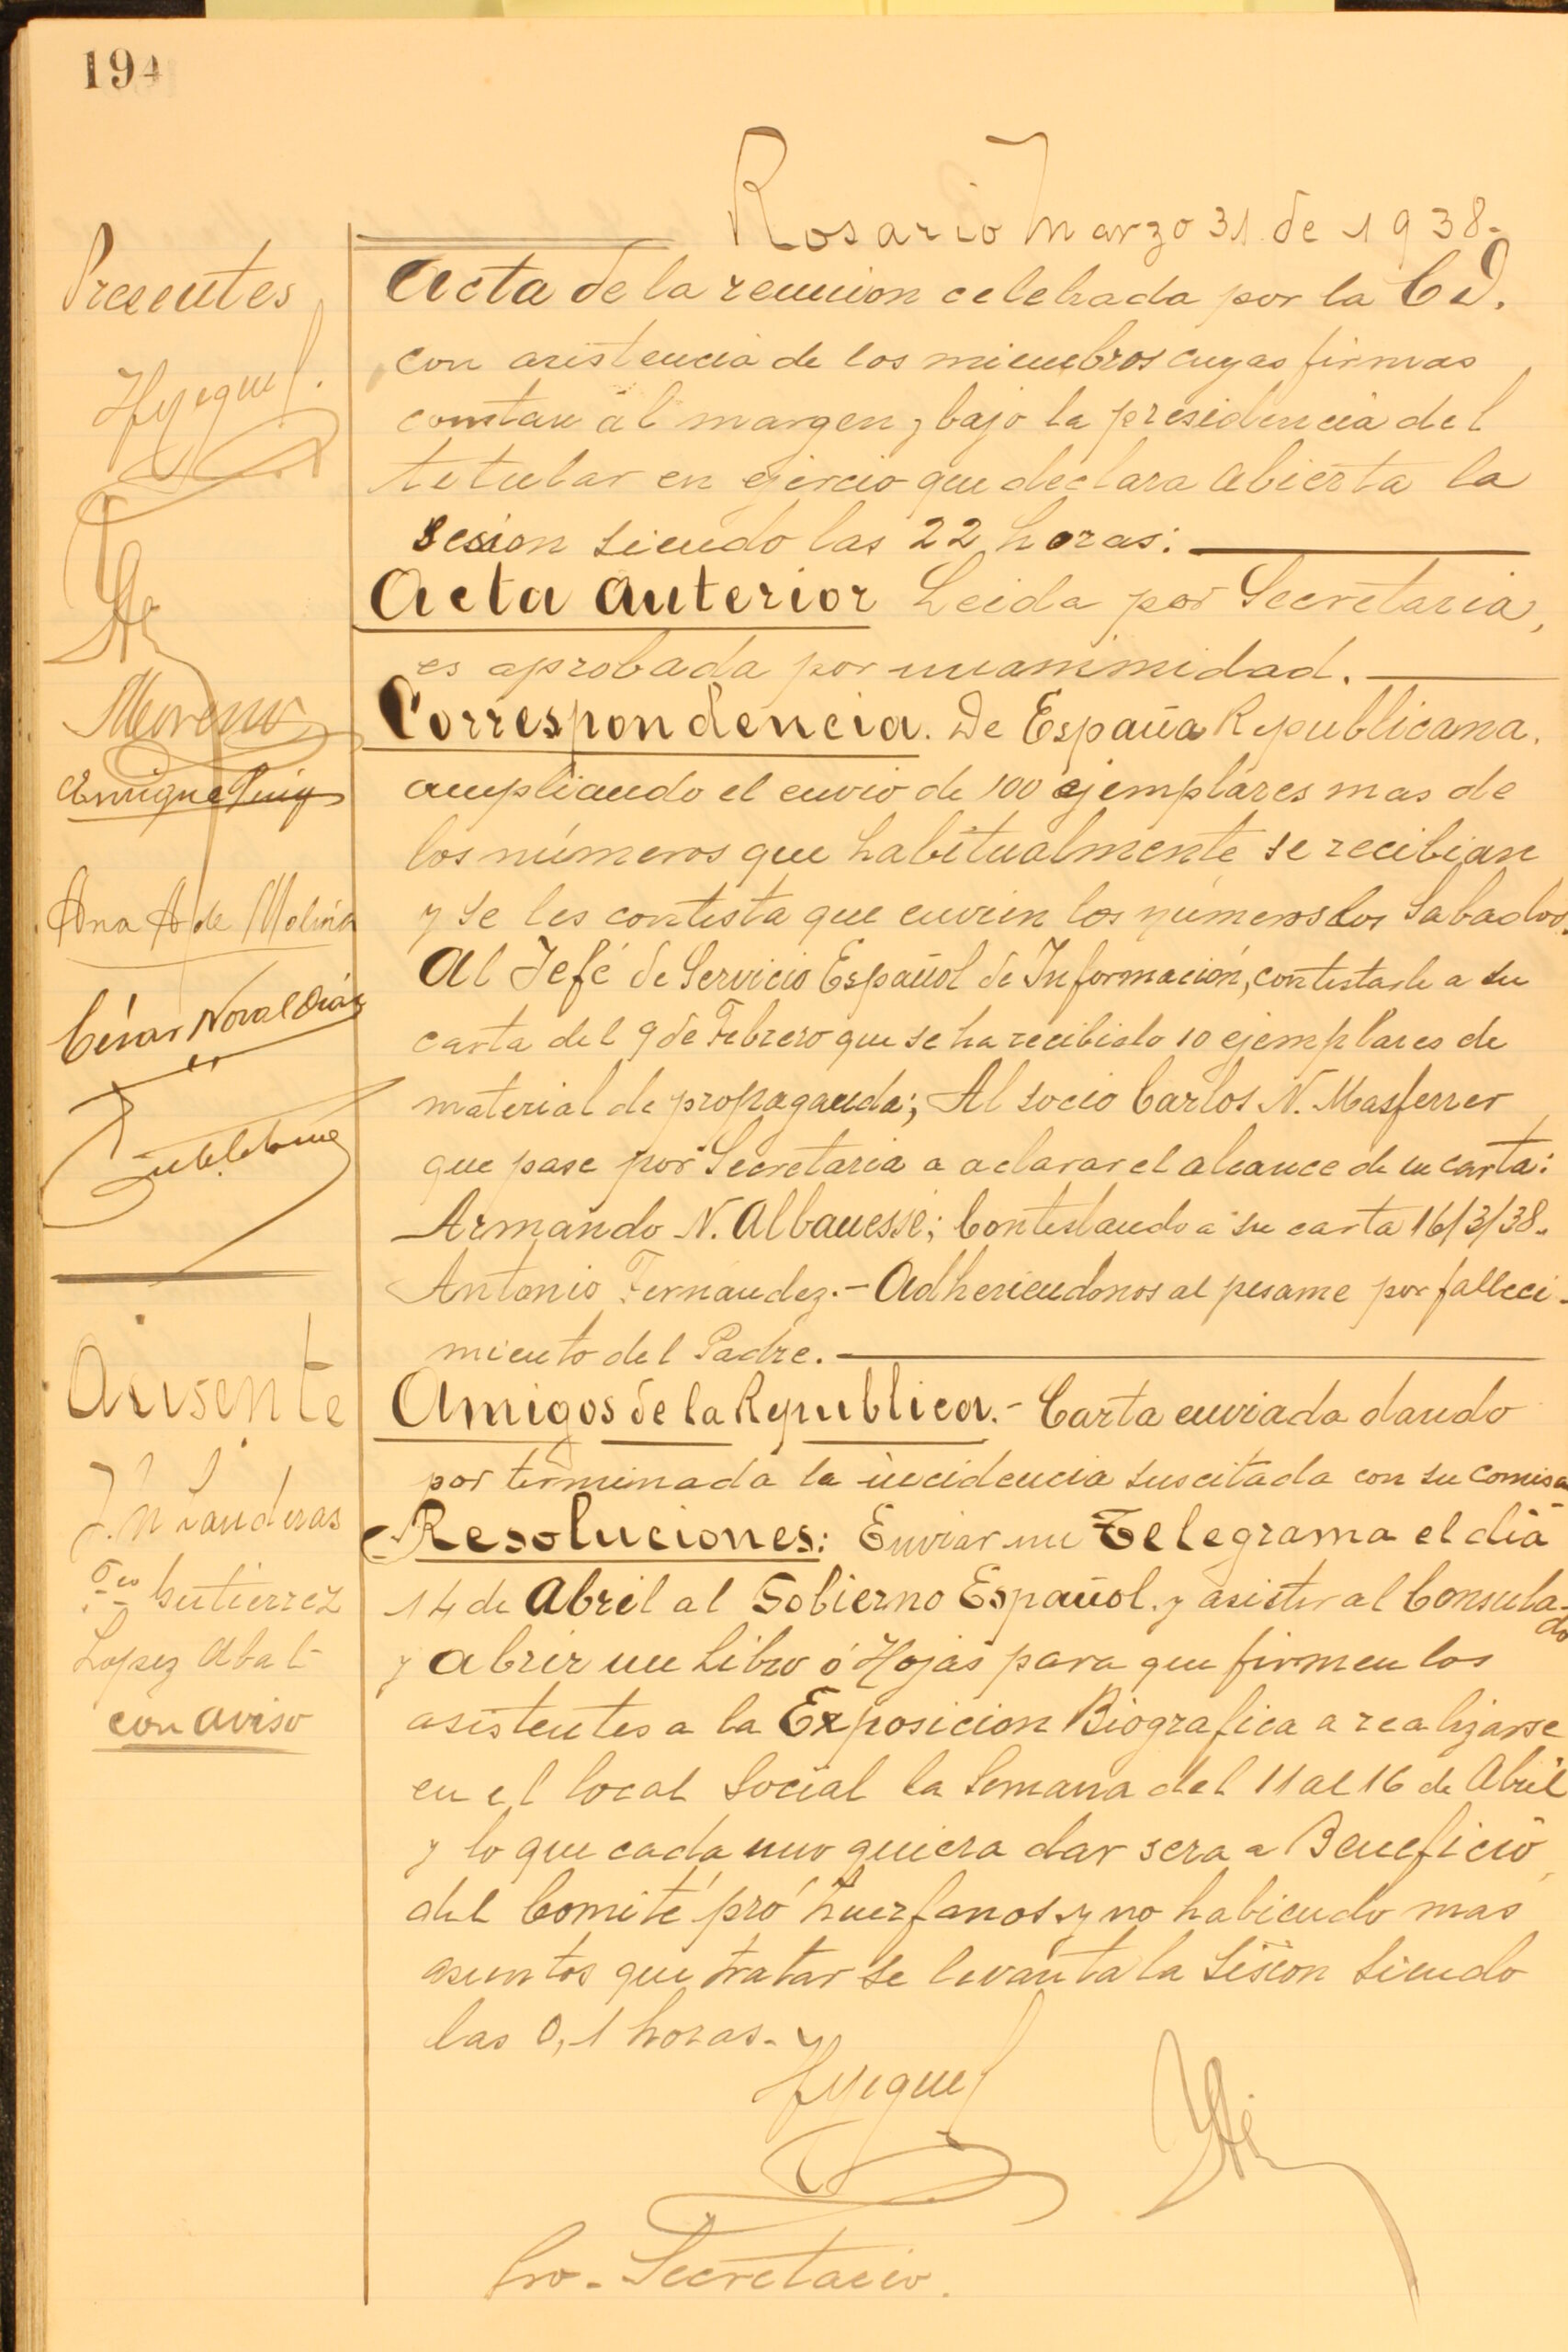 194
Rosario Marzo 31 de 1938.-
Presentes
Acta de la reunion celebrada por la C D.
con asistencia de los miembros cuyas firmas
constan al margen, bajo la presidencia del
titular en ejercio que declara abierta la
Sesion siendo las 22 horas:
Acta anterior Leida por Secretaria,
es aprobada por unanimidad.
Moreno
Correspondencia. De España Republicana.
Enrique Puig
ampliando el envio de 100 ejemplares mas de
los números que habitualmente se recibian
Ana A de Molina
y se les contesta que envien los números los Sabados.
César Noval Díaz
Al Jefé de Servicio Español de Información, contestarle a su
carta del 9 de Febrero que se ha recibido 10 ejemplares de
material de propaganda; Al socio Carlos N. Masferrer
que pase por Secretaria a aclarar el alcance de su carta:
Armando N. Albanesse; Contestando a su carta 16/3/38.-
Antonio Fernandez.- Adheriendonos al pesame por falleci-
miento del Padre.
Ausente
Amigos de la Republica.- Carta enviada dando
por terminada la incidencia suscitada con su comision
Resoluciones: Enviar un Telegrama el dia
Gutierrez
14 de Abril al Gobierno Español y asistir al Consulado
Lopez Abat
y abrir un Libro ó Hojas para que firmen los
con aviso
asistentes a la Exposicion Biografica a realizarse
en el local Social la Semana del 11 al 16 de Abril
y lo que cada uno quiera dar sera a Beneficio
del Comité pró huerfanos. y no habiendo mas
asuntos que tratar se levanta la Sesion siendo
las 0,1 horas.-
Pro-Secretario.